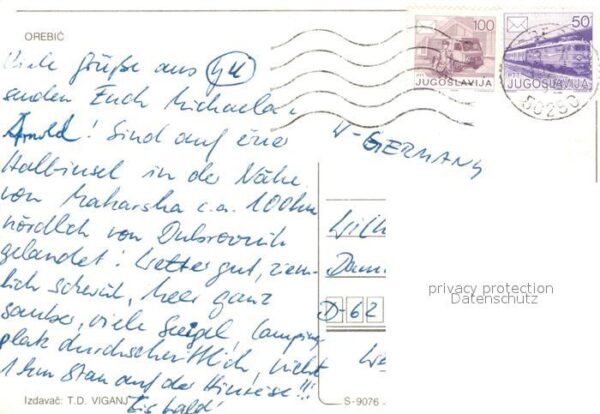 OREBIĆ
Viele Grüße aus YU
senden Euch Michaela u.
Arnold! Sind auf einer
Halbinsel in der Nähe
von Makarska c.a. 100km
nördlich von Dubrovnik
gelandet! Wetter gut, ziem-
lich schwül, Meer ganz
sauber, viele Seeigel, Camping
platz durchschnittlich, nicht
1 km Stau auf der Hinreise!!!
Bis bald!
Izdavač: T.D. VIGANJ
100
JUGOSLAVIJA
50
JUGOSLAVIJA
50250
W-GERMANY
Wilh
Dam
privacy protection
Datenschutz
D-62
We
S-9076